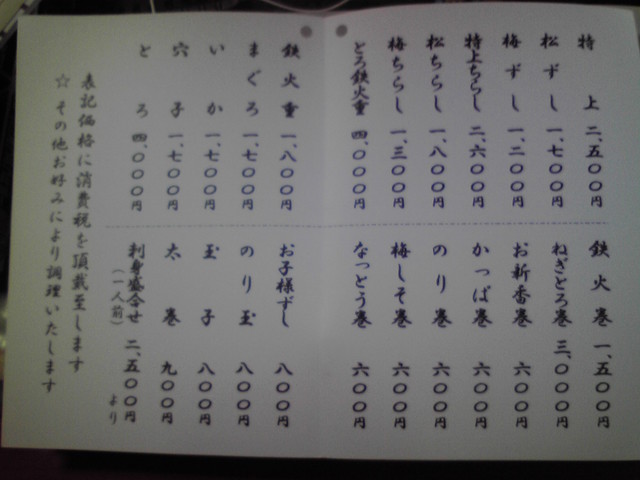 特上 二、五〇〇円
松ずし 一、七〇〇円
梅ずし 一、二〇〇円
特上ちらし 二、六〇〇円
松ちらし 一、八〇〇円
梅ちらし 一、三〇〇円
とろ鉄火重 四、〇〇〇円
鉄火巻 一、五〇〇円
ねぎとろ巻 三、〇〇〇円
お新香巻 六〇〇円
かっぱ巻 六〇〇円
のり巻 六〇〇円
梅しそ巻 六〇〇円
なっとう巻 六〇〇円
鉄火重 一、八〇〇円
まぐろ 一、七〇〇円
いか 一、七〇〇円
穴子 一、七〇〇円
とろ 四、〇〇〇円
お子様ずし 八〇〇円
のり玉 八〇〇円
玉子 八〇〇円
太巻 九〇〇円
刺身盛合せ(一人前) 二、五〇〇円より
表記価格に消費税を頂戴至します
☆ その他お好みにより調理いたします